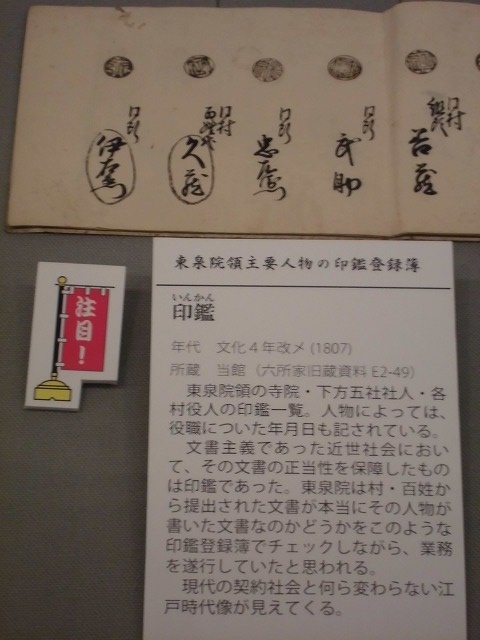 同村
組代
善蔵
同断
武助
同断
忠兵衛
同村
百姓代
久蔵
同断
伊右衛門
注目！
東泉院領主要人物の印鑑登録簿
いんかん
印鑑
年代　文化４年改メ(1807)
所蔵　当館（六所家旧蔵資料 E2-49）
　東泉院領の寺院・下方五社社人・各
村役人の印鑑一覧。人物によっては、
役職についた年月日も記されている。
　文書主義であった近世社会におい
て、その文書の正当性を保障したもの
は印鑑であった。東泉院は村・百姓か
ら提出された文書が本当にその人物が
書いた文書なのかどうかをこのような
印鑑登録簿でチェックしながら、業務
を遂行していたと思われる。
　現代の契約社会と何ら変わらない江
戸時代像が見えてくる。